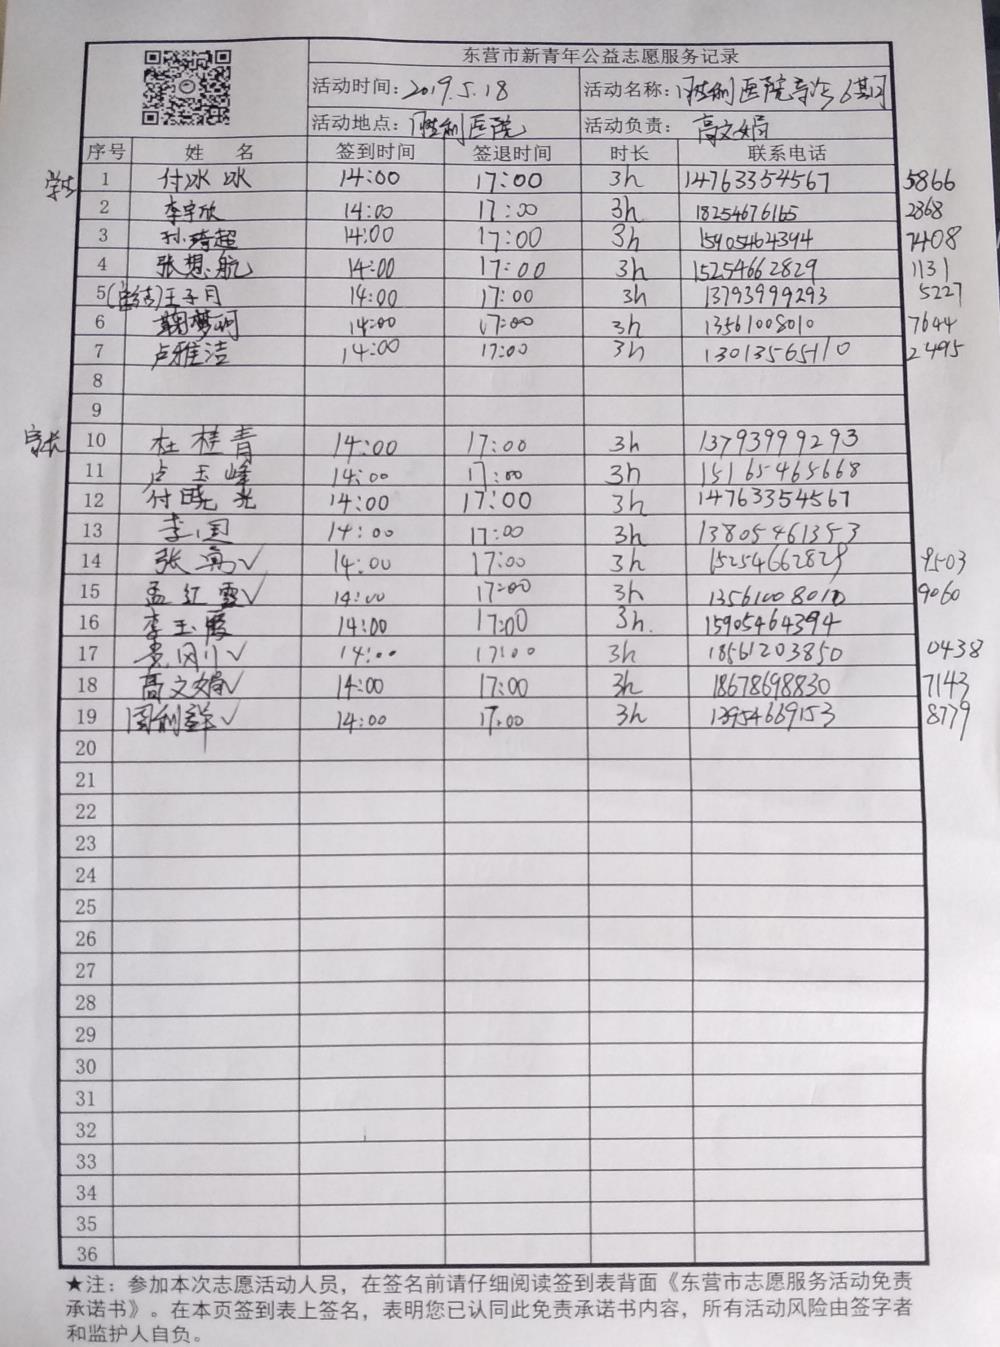 东营市新青年公益志愿服务记录
活动时间：2019.5.18 活动名称：胜利医院导诊6期
活动地点：胜利医院 活动负责：高文娟
序号 姓 名 签到时间 签退时间 时长 联系电话
学生 1 付冰冰 14:00 17:00 3h 14763354567 5866
2 李宇欣 14:00 17:00 3h 18254676165 2868
3 孙琦超 14:00 17:00 3h 15905464394 7408
4 张想航 14:00 17:00 3h 15254662829 1131
5 王子月 14:00 17:00 3h 13793999293 5227
6 鞠梦珂 14:00 17:00 3h 13561008010 7644
7 卢雅洁 14:00 17:00 3h 13013565110 2495
8
9
家长 10 杜桂青 14:00 17:00 3h 13793999293
11 卢玉峰 14:00 17:00 3h 15165465668
12 付晓光 14:00 17:00 3h 14763354567
13 李国 14:00 17:00 3h 13805461353
14 张勇√ 14:00 17:00 3h 15254662829 9503
15 孟红霞√ 14:00 17:00 3h 13561008010 9060
16 李玉霞 14:00 17:00 3h. 15905464394
17 √ 14:00 17:00 3h 18561203850 0438
18 高文娟√ 14:00 17:00 3h 18678698830 7143
19 周利群√ 14:00 17:00 3h 13954669153 8779
20
21
22
23
24
25
26
27
28
29
30
31
32
33
34
35
36
★注：参加本次志愿活动人员，在签名前请仔细阅读签到表背面《东营市志愿服务活动免责
承诺书》。在本页签到表上签名，表明您已认同此免责承诺书内容，所有活动风险由签字者
和监护人自负。